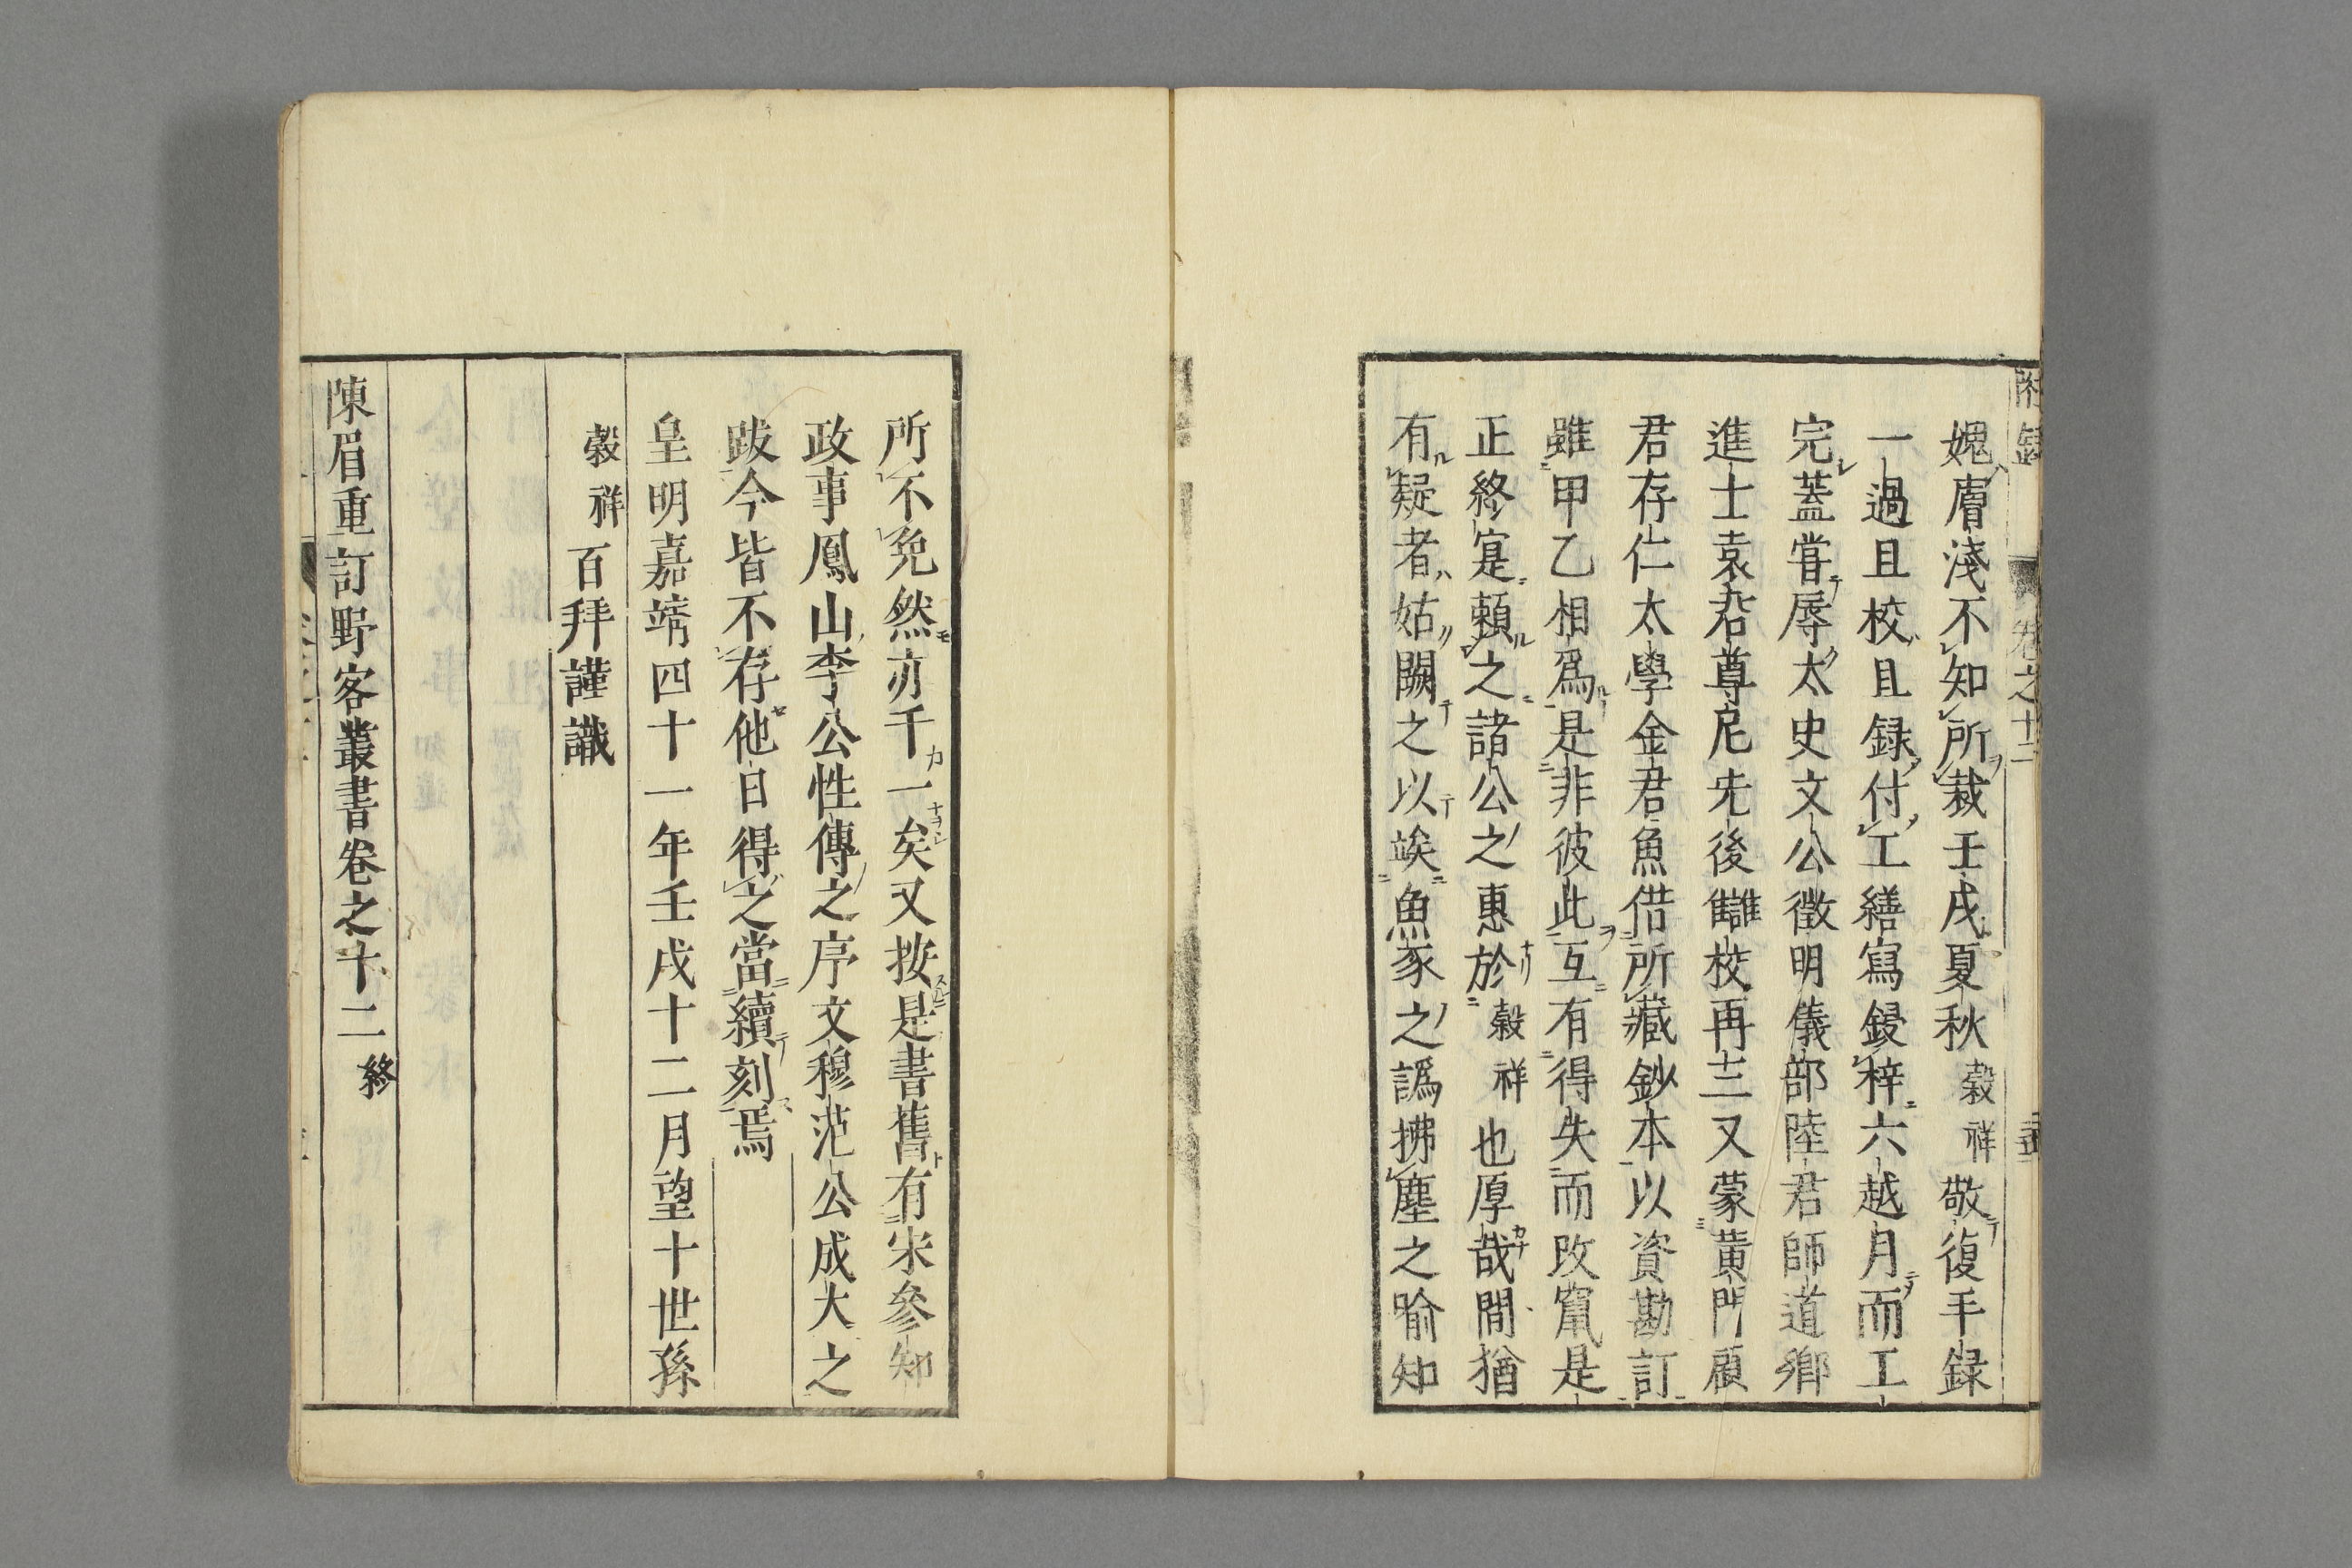 附録 卷之十二
媿膚淺不知所裁壬戌夏秋穀祥敬復手録
一過且校且録付工繕寫鋟梓六越月而工
完蓋嘗辱太史文公徵明儀部陸君師道鄉
進士袁君尊尼先後讎校再三又蒙黄門顧
君存仁太學金君魚借所藏鈔本以資勘訂
雖甲乙相爲是非彼此互有得失而攺竄是
正終寔頼之諸公之惠於穀祥也厚哉間猶
有疑者姑闕之以竢魚豕之譌拂塵之喻知
所不免然亦千一矣又按是書舊有宋參知
政事鳳山李公性傳之序文穆范公成大之
跋今皆不存他日得之當續刻焉
皇明嘉靖四十一年壬戌十二月望十世孫
穀祥百拜謹識
陳眉重訂野客叢書卷之十二終